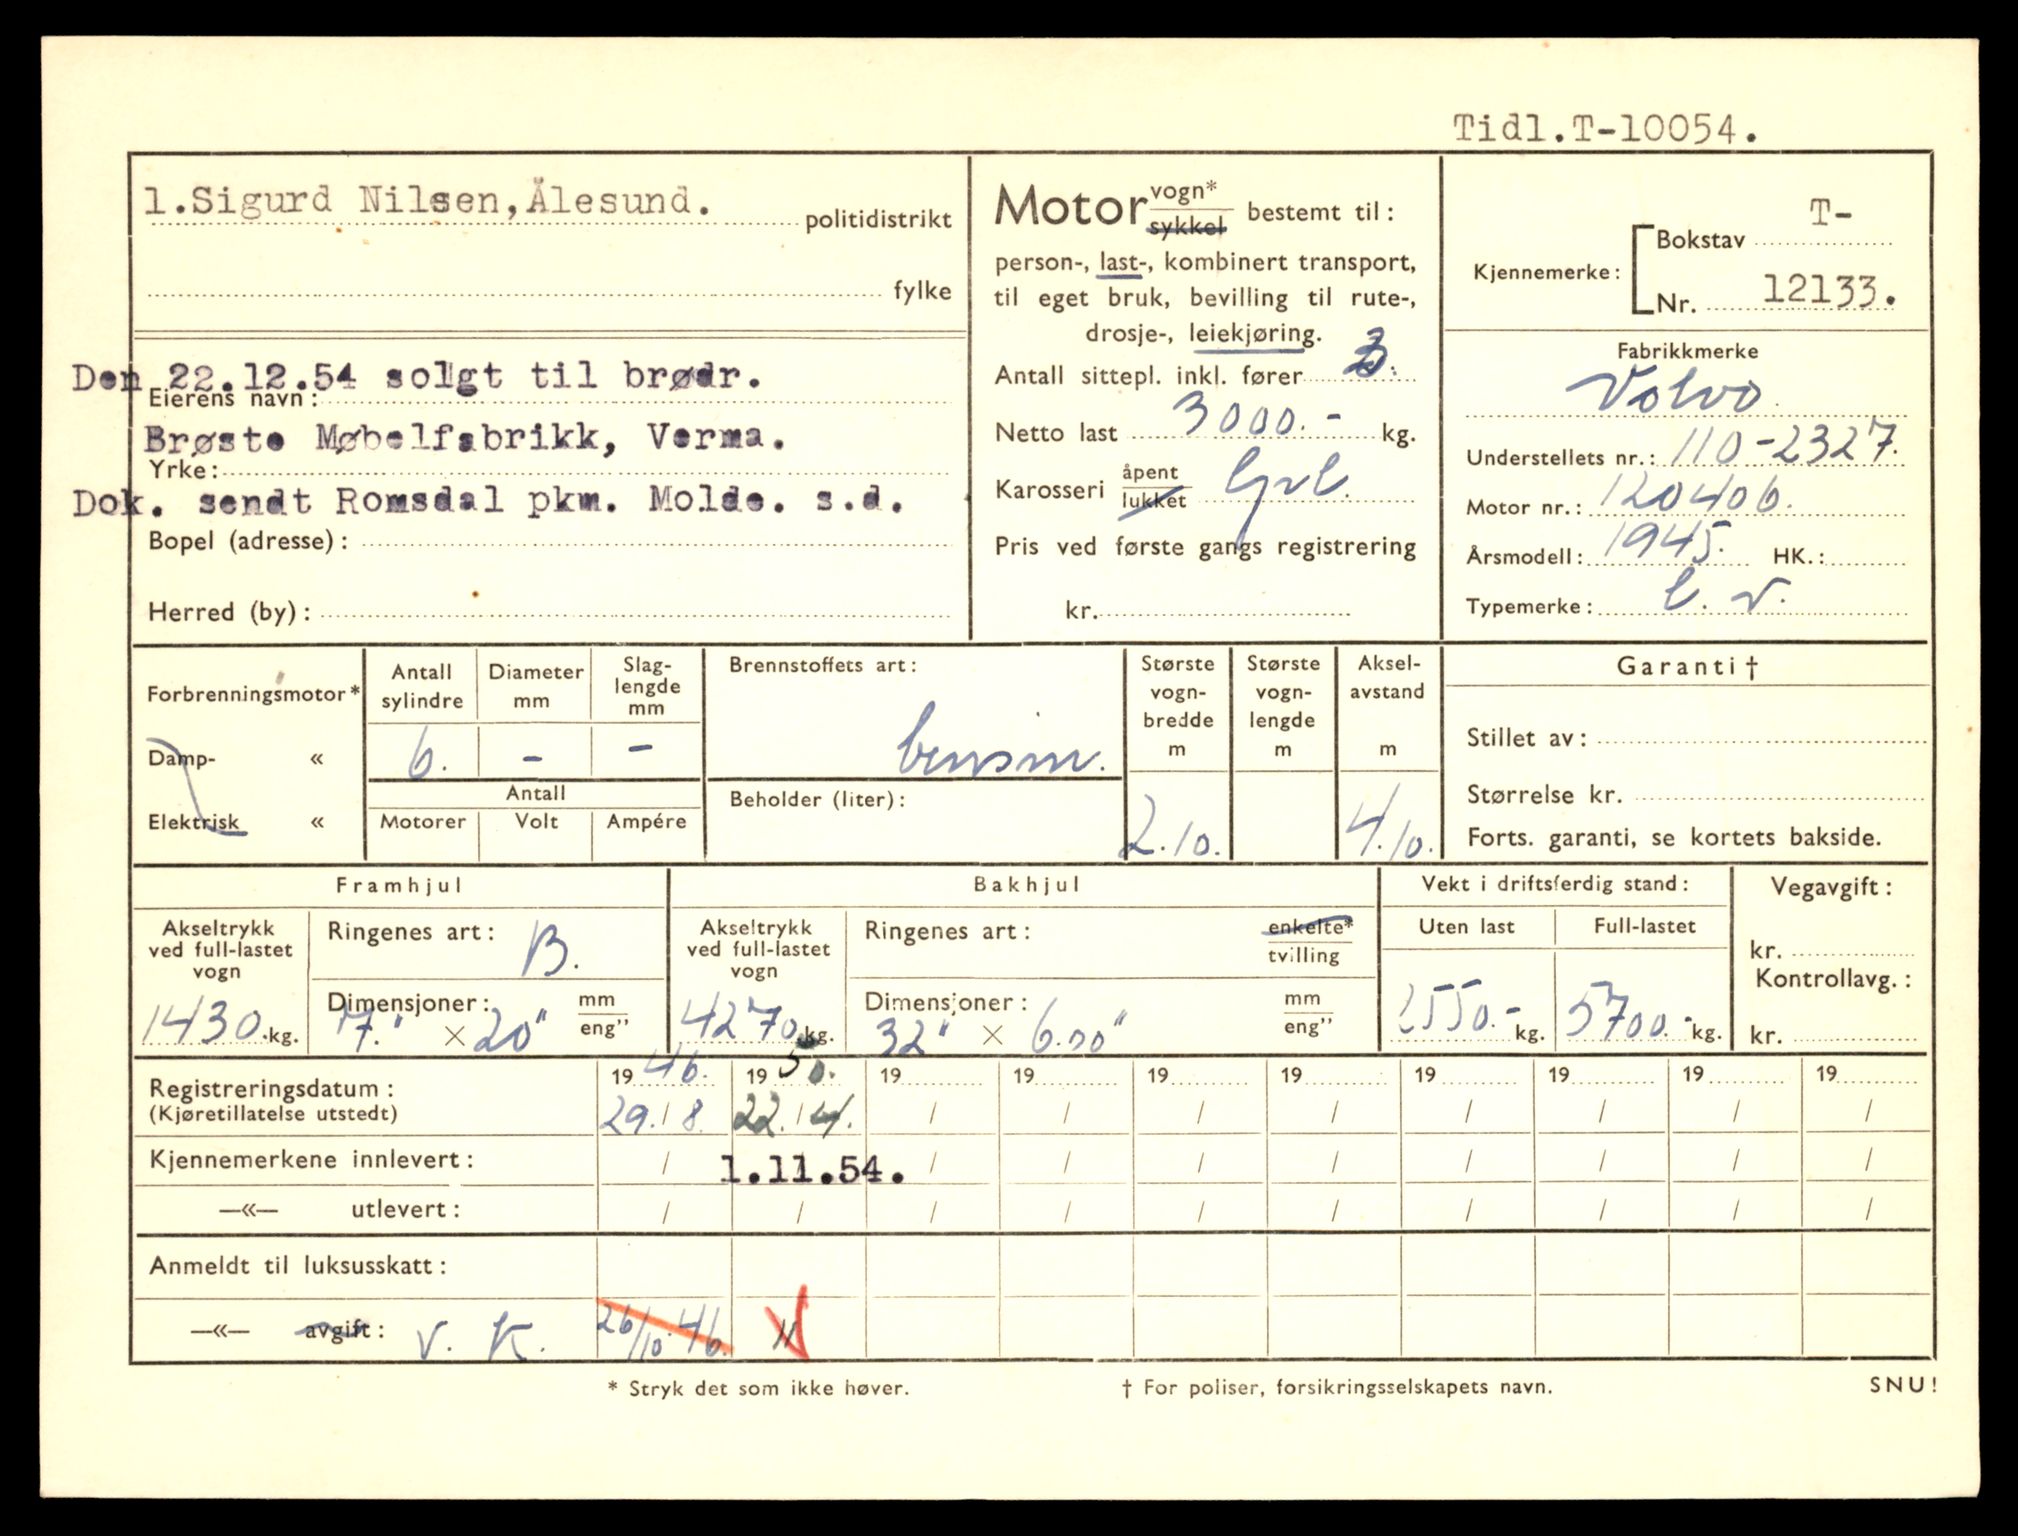 Tidl.T-10054.
1.Sigurd Nilsen, Ålesund. politidistrikt
fylke
Den 22.12.54 solgt til brødr.
Eierens navn:
Brøste Møbelfabrikk, Verma.
Yrke:
Dok. sendt Romsdal pkm. Molde. s.d.
Bopel (adresse):
Herred (by):
Motor vogn* / sykkel bestemt til:
person-, last-, kombinert transport,
til eget bruk, bevilling til rute-,
drosje-, leiekjøring.
Antall sittepl. inkl. fører 3.
Netto last 3000.- kg.
Karosseri åpent / lukket
Pris ved første gangs registrering
kr.
Kjennemerke: Bokstav T-
Nr. 12133.
Fabrikkmerke
Volvo.
Understellets nr.: 110-2327.
Motor nr.: 120406.
Årsmodell: 1945. HK.:
Typemerke: l. v.
Forbrenningsmotor*
Damp- «
Elektrisk «
Antall sylindre
Diameter mm
Slag-lengde mm
6. - -
Antall
Motorer Volt Ampére
Brennstoffets art:
bensin.
Beholder (liter):
Største vogn-bredde m
2.10.
Største vogn-lengde m
Aksel-avstand m
4.10.
Garanti †
Stillet av:
Størrelse kr.
Forts. garanti, se kortets bakside.
Framhjul
Akseltrykk ved full-lastet vogn
1430. kg.
Ringenes art: B.
Dimensjoner: mm / eng"
7." × 20"
Bakhjul
Akseltrykk ved full-lastet vogn
4270. kg.
Ringenes art: enkelte* / tvilling
Dimensjoner: mm / eng"
32" × 6.00"
Vekt i driftsferdig stand:
Uten last Full-lastet
2550.- kg. 5700.- kg.
Vegavgift:
kr.
Kontrollavg.:
kr.
Registreringsdatum: 19 46. 19 50. 19 19 19 19 19 19 19 19
(Kjøretillatelse utstedt) 29./8. 22./4. / / / / / / / /
Kjennemerkene innlevert: / 1.11.54. / / / / / / / /
—«— utlevert: / / / / / / / / / /
Anmeldt til luksusskatt:
—«— avgift: V. K. 26/10.46. "
* Stryk det som ikke høver.
† For poliser, forsikringsselskapets navn.
SNU!